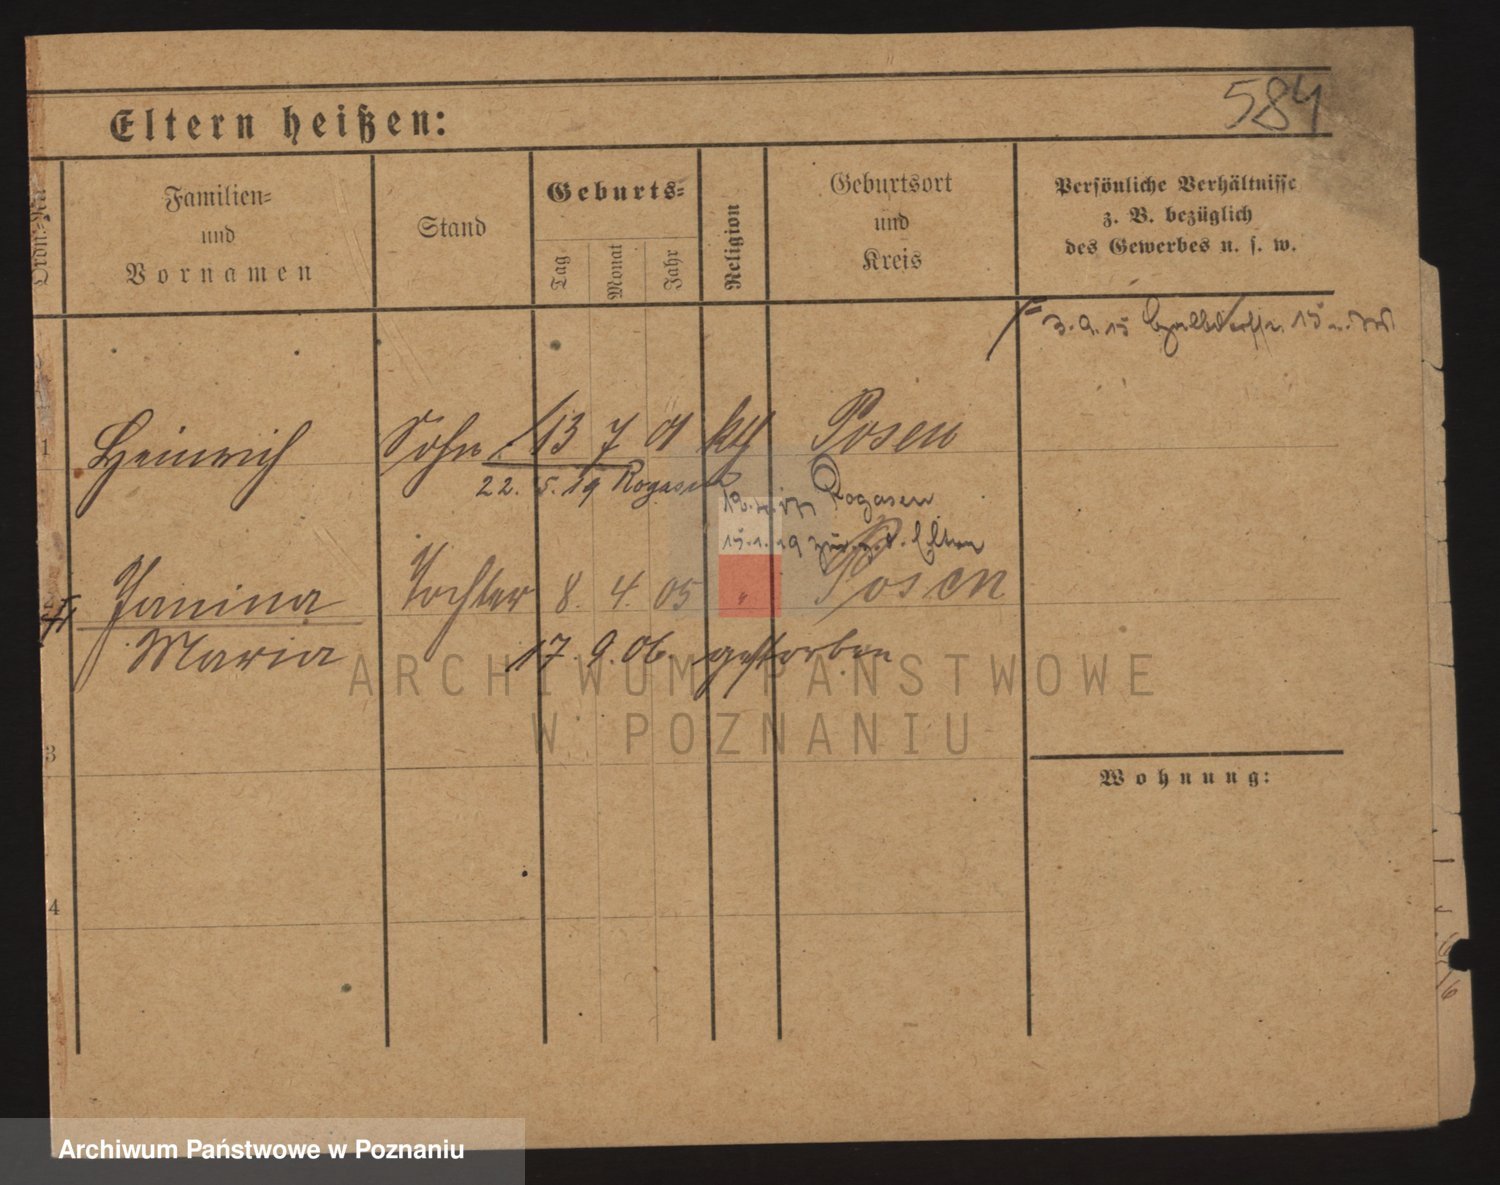 584
Eltern heißen:
Ordn.-Nr.
Familien-
und
Vornamen
Stand
Geburts-
Tag
Monat
Jahr
Religion
Geburtsort
und
Kreis
Persönliche Verhältnisse
z. B. bezüglich
des Gewerbes u. s. w.
3.9.15
1 Heinrich Sohn 13 7 01 Posen
22. 5. 19 Rogasen
Rogasen
15.1.19 Eltern
Janina Tochter 8. 4. 05 " Posen
Maria 17. 9. 06. gestorben
3
Wohnung:
4
ARCHIWUM PAŃSTWOWE
W POZNANIU
Archiwum Państwowe w Poznaniu